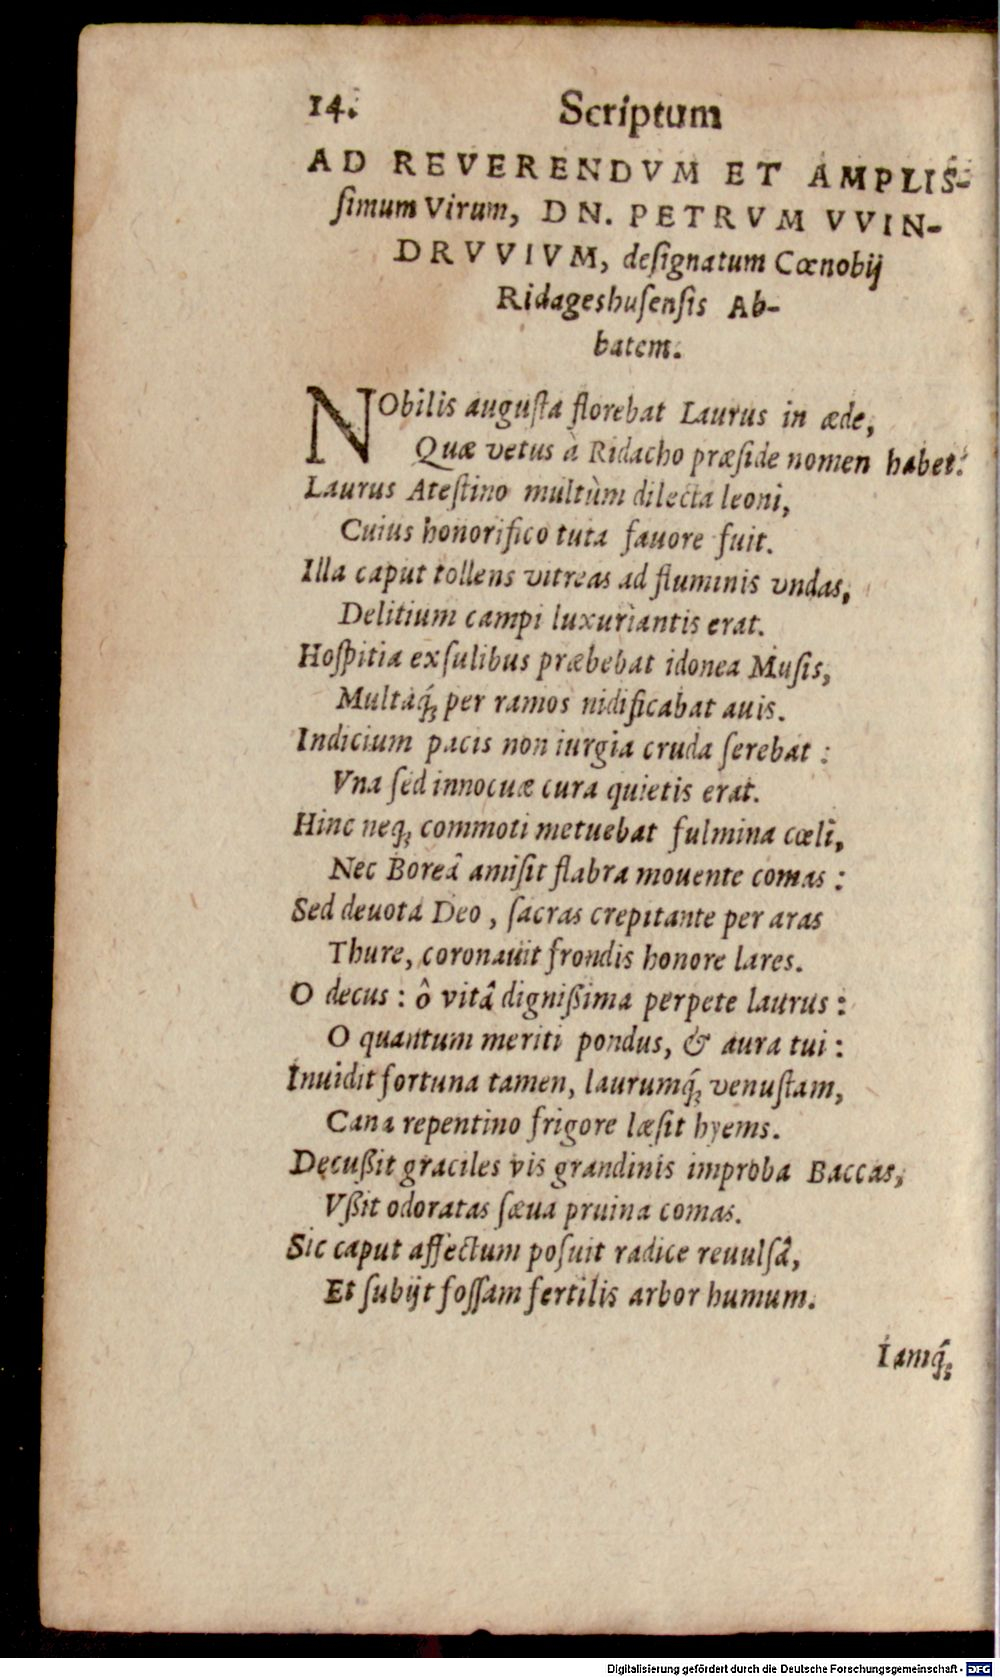 14. Scriptum
AD REVERENDVM ET AMPLIS-
ſimum Virum, DN. PETRVM VVIN-
DRVVIVM, deſignatum Cœnobij
Ridageshuſenſis Ab-
batem.
NObilis auguſta florebat Laurus in æde,
Quæ vetus à Ridacho præſide nomen habet.
Laurus Ateſtino multùm dilecta leoni,
Cuius honorifico tuta fauore fuit.
Illa caput tollens vitreas ad fluminis vndas,
Delitium campi luxuriantis erat.
Hoſpitia exſulibus præbebat idonea Muſis,
Multaq́; per ramos nidificabat auis.
Indicium pacis non iurgia cruda ſerebat :
Vna ſed innocuæ cura quietis erat.
Hinc neq; commoti metuebat fulmina cœli,
Nec Boreâ amiſit flabra mouente comas :
Sed deuota Deo, ſacras crepitante per aras
Thure, coronauit frondis honore lares.
O decus : ô vitâ dignißima perpete laurus :
O quantum meriti pondus, & aura tui :
Inuidit fortuna tamen, laurumq́; venuſtam,
Cana repentino frigore læſit hyems.
Decußit graciles vis grandinis improba Baccas,
Vßit odoratas ſæua pruina comas.
Sic caput affectum poſuit radice reuulſâ,
Et ſubijt foſſam fertilis arbor humum.
Iamq́;
Digitalisierung gefördert durch die Deutsche Forschungsgemeinschaft - DFG